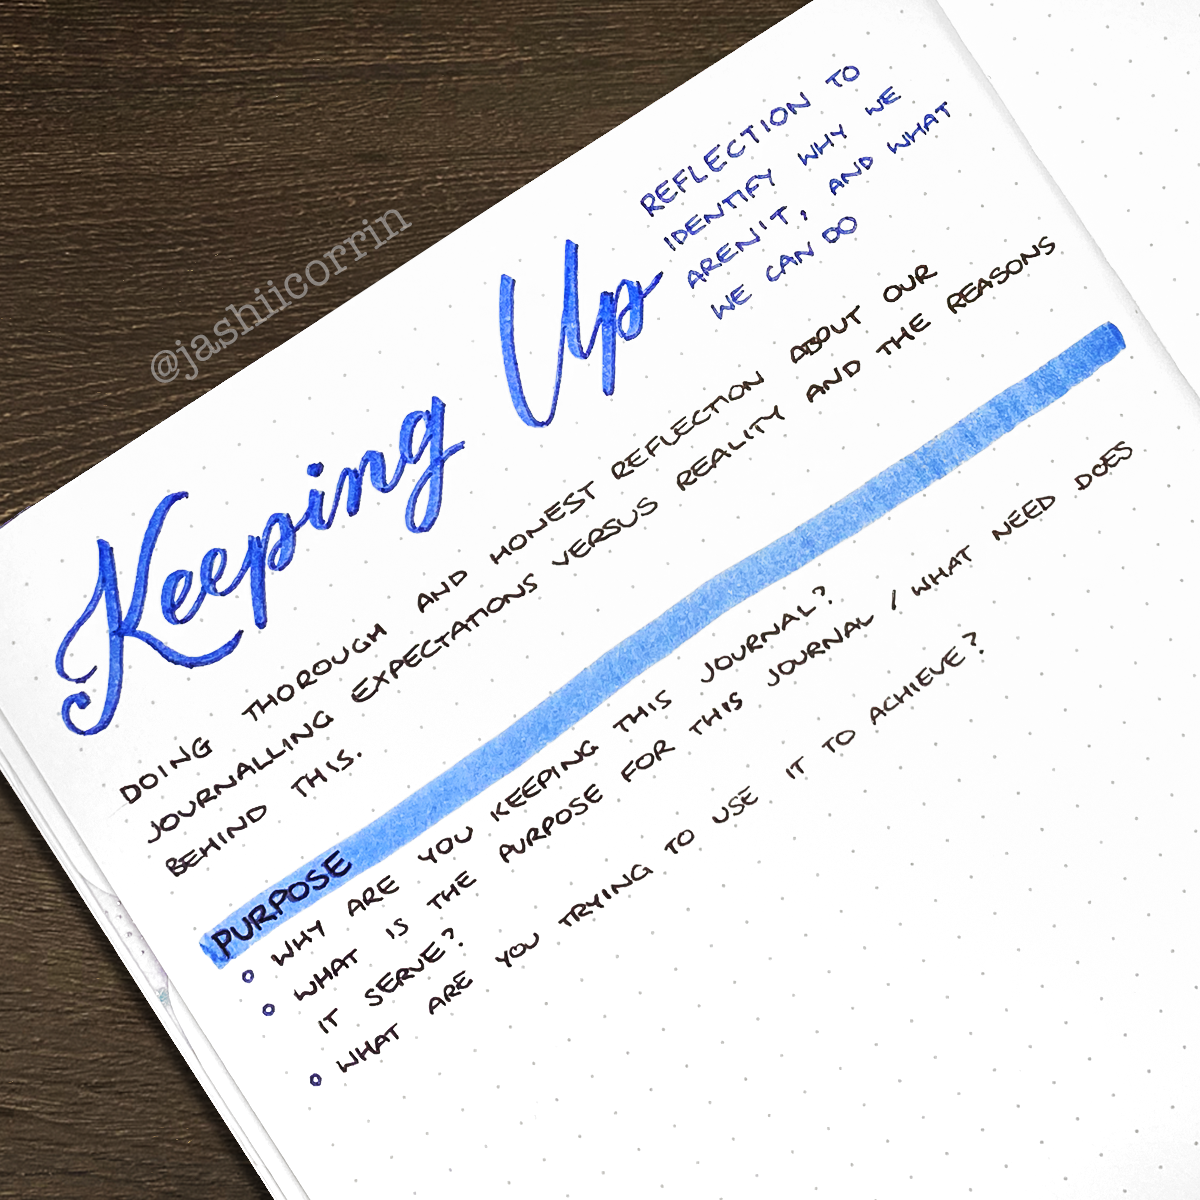 @jashiicorrin
Keeping Up
REFLECTION TO
IDENTIFY WHY WE
AREN'T, AND WHAT
WE CAN DO
DOING THOROUGH AND HONEST REFLECTION ABOUT OUR
JOURNALLING EXPECTATIONS VERSUS REALITY AND THE REASONS
BEHIND THIS.
PURPOSE
WHY ARE YOU KEEPING THIS JOURNAL?
WHAT IS THE PURPOSE FOR THIS JOURNAL / WHAT NEED DOES
IT SERVE?
WHAT ARE YOU TRYING TO USE IT TO ACHIEVE?